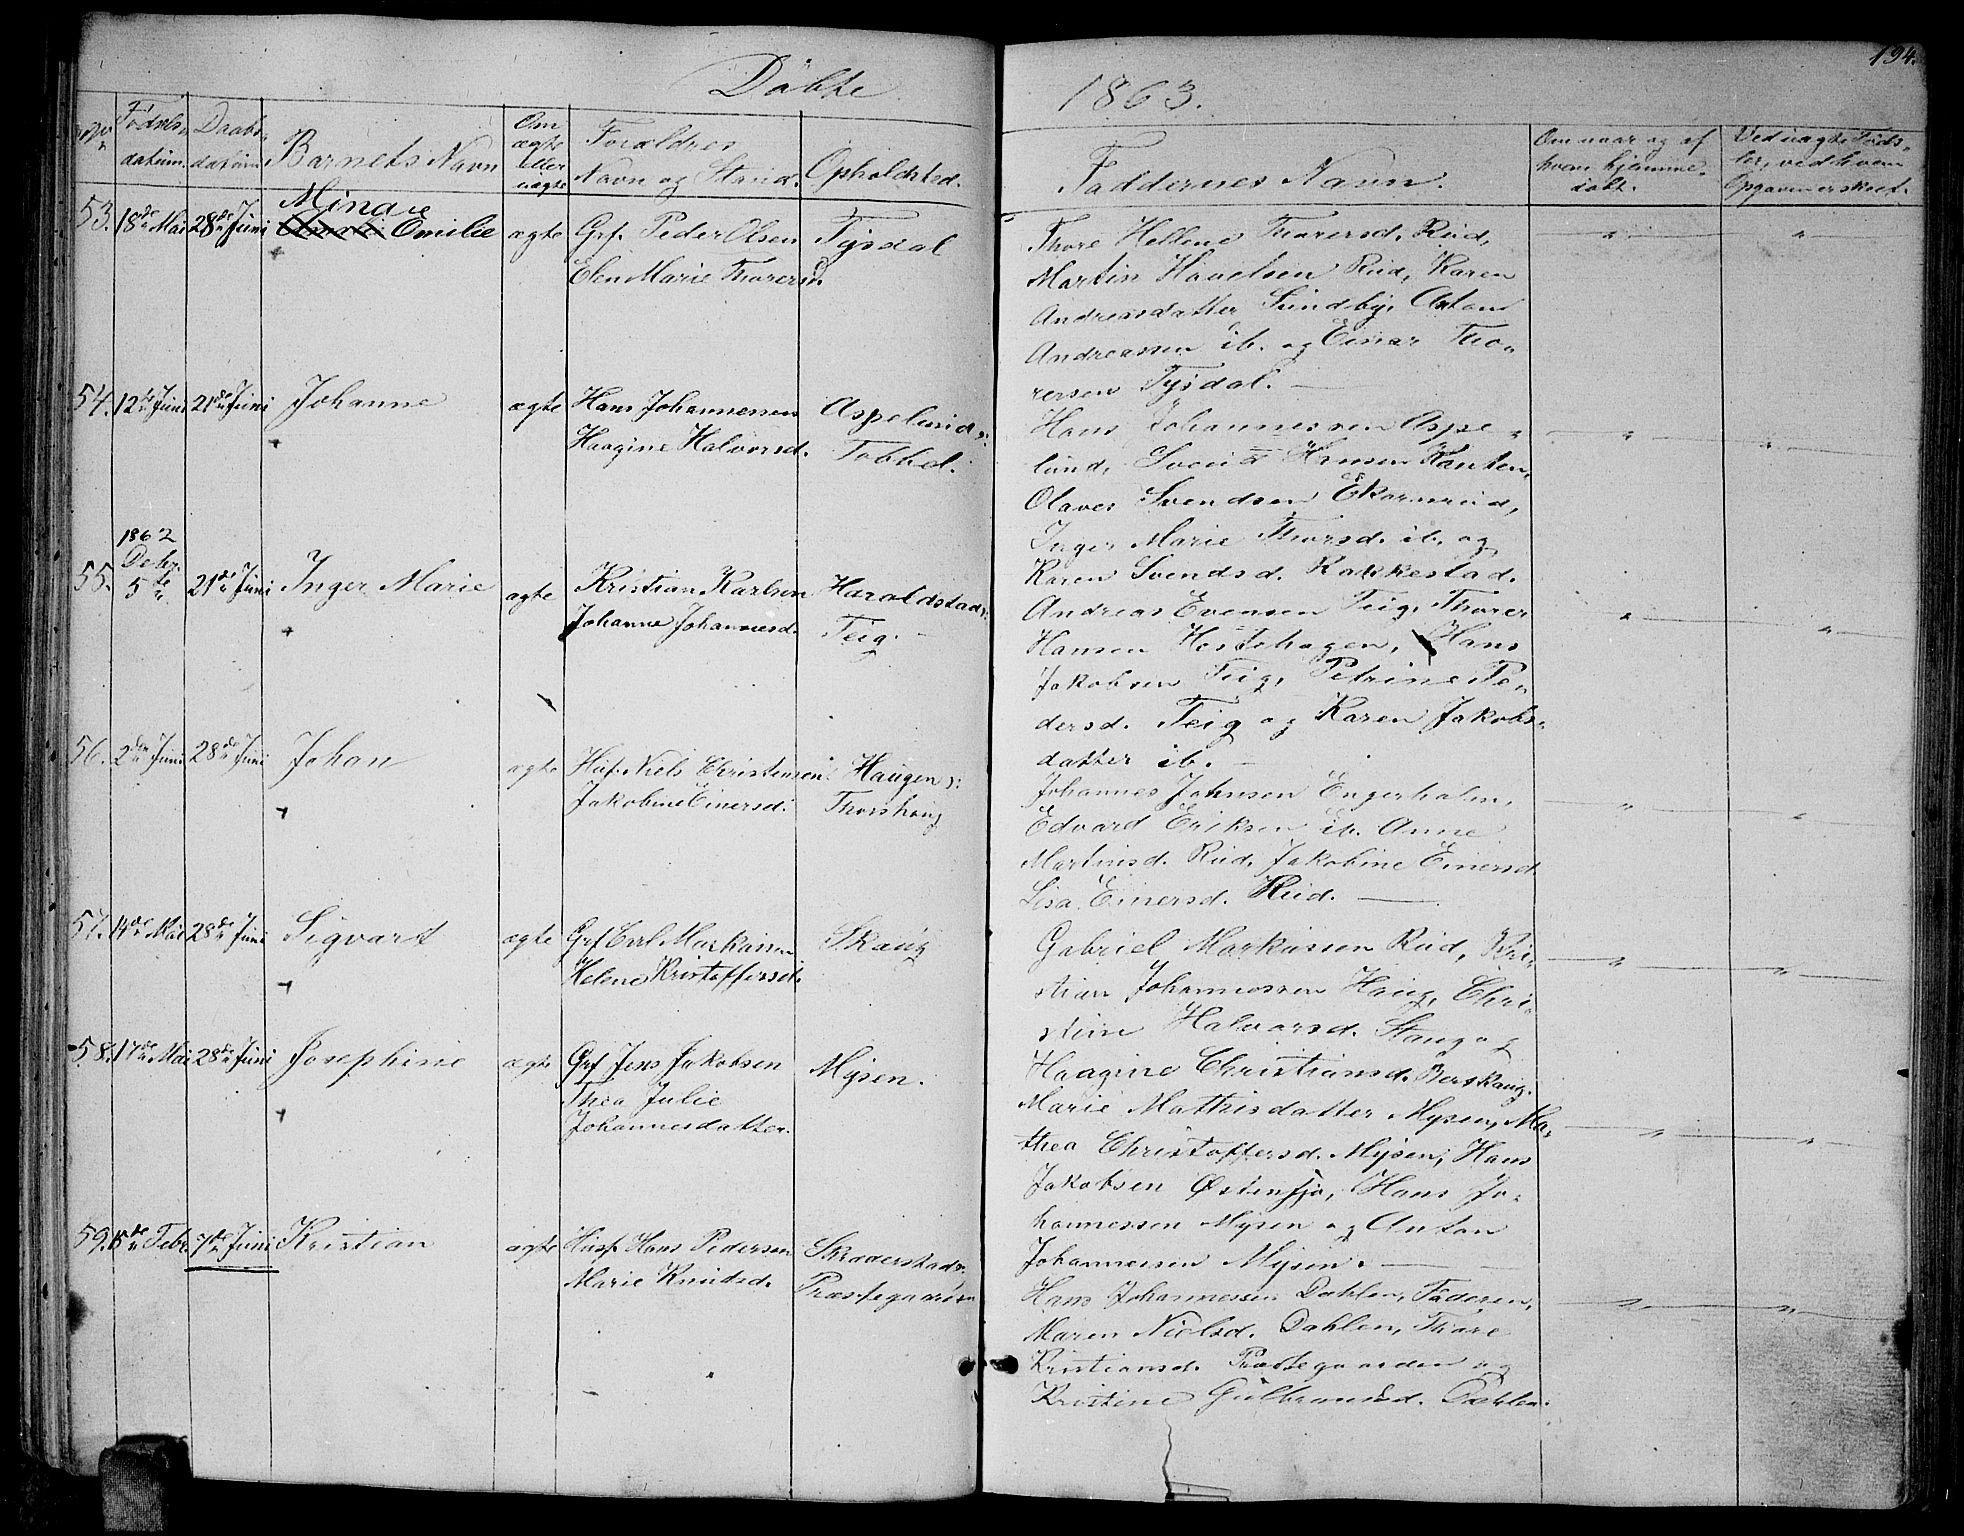 Döbte
1863.
194.
Fødsels-
datum.
Daabs-
datum.
Barnets Navn
Om
ægte
eller
uægte
Forældres
Navn og Stand.
Opholdsted.
Faddernes Navn.
Om naar og af
hvem hjemme-
døbt.
Ved uægte Føds-
ler, ved hvem
Opgaven er skeet.
53. 18de Mai 28de Juni Mina Emilie ægte Grf. Peder Olsen Tysdal
Elen Marie Thorersd.
Thore Hellene Thorersd. Rud,
Martin Haaelsen Rud, Karen
Andreasdatter Sundby, Anton
Andreassen ib. og Einar Tho-
rersen Tysdal.
54. 12te Juni 21de Juni Johanne ægte Hans Johannessen Aspelund
Haagine Halvorsd.
Hans Johannessen Aspe-
lund, Svend Hansen Kanten,
Olaves Svendsen Ekornrud,
Inger Marie Thorsd. ib. og
Karen Svendsd. Rakkestad.
1862
Debr.
55. 5te 21de Juni Inger Marie ægte Kristian Karlsen Haraldstad
Johanne Johannesd. Teig.
Andreas Evensen Teig, Thorer
Hansen Hestehagen, Hans
Jakobsen Teig, Petrine Pe-
dersd. Teig og Karen Jakobs-
datter ib.
56. 2den Juni 28de Juni Johan ægte Husf. Niels Christensen Haugen
Jakobine Einersd. Thorshaug
Johannes Johnsen Engerholm,
Edvard Eriksen ib. Anne
Martinsd. Rud, Jakobine Einersd.
Lisa Einersd. Rud.
57. 14de Mai 28de Juni Sigvart ægte Grf Carl Markussen Skaug
Helene Kristoffersd.
Gabriel Markussen Rud, Kri-
stian Johannessen Haug, Chri-
stine Halvorsd. Skaug og
Haagine Christiansd. Berskaug.
58. 17de Mai 28de Juni Josephine ægte Grf Jens Jakobsen Mysen.
Thea Julie
Johannesdatter.
Marie Mathisdatter Mysen, Ma-
thea Christoffersd. Mysen, Hans
Jakobsen Østensjø, Hans Jo-
hannessen Mysen og Anton
Johannessen Mysen.
59. 15de Febr. 7de Juni Kristian ægte Husf. Hans Pedersen Skraderstad
Marie Knudsd. Præstegaarden
Hans Johannessen Dahlen, Faderen,
Maren Nielsd. Dahlen, Thore
Kristiansd. Præstegaarden og
Kristine Gulbrandsd. Dahlen.